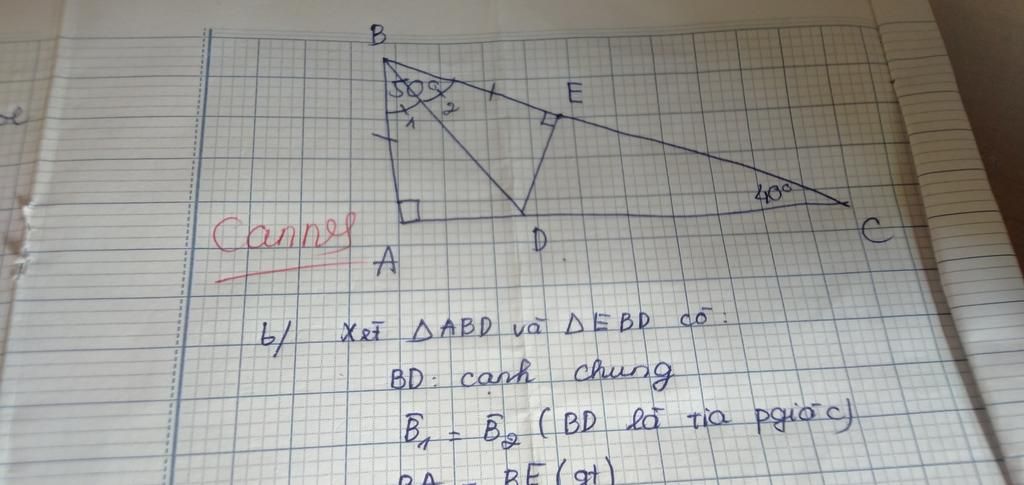 B
50°
1 2
E
40°
A
D
C
Cannes
b/ Xét ΔABD và ΔEBD có:
BD: cạnh chung
B̂₁ = B̂₂ (BD là tia pgiác)
BA = BE (gt)